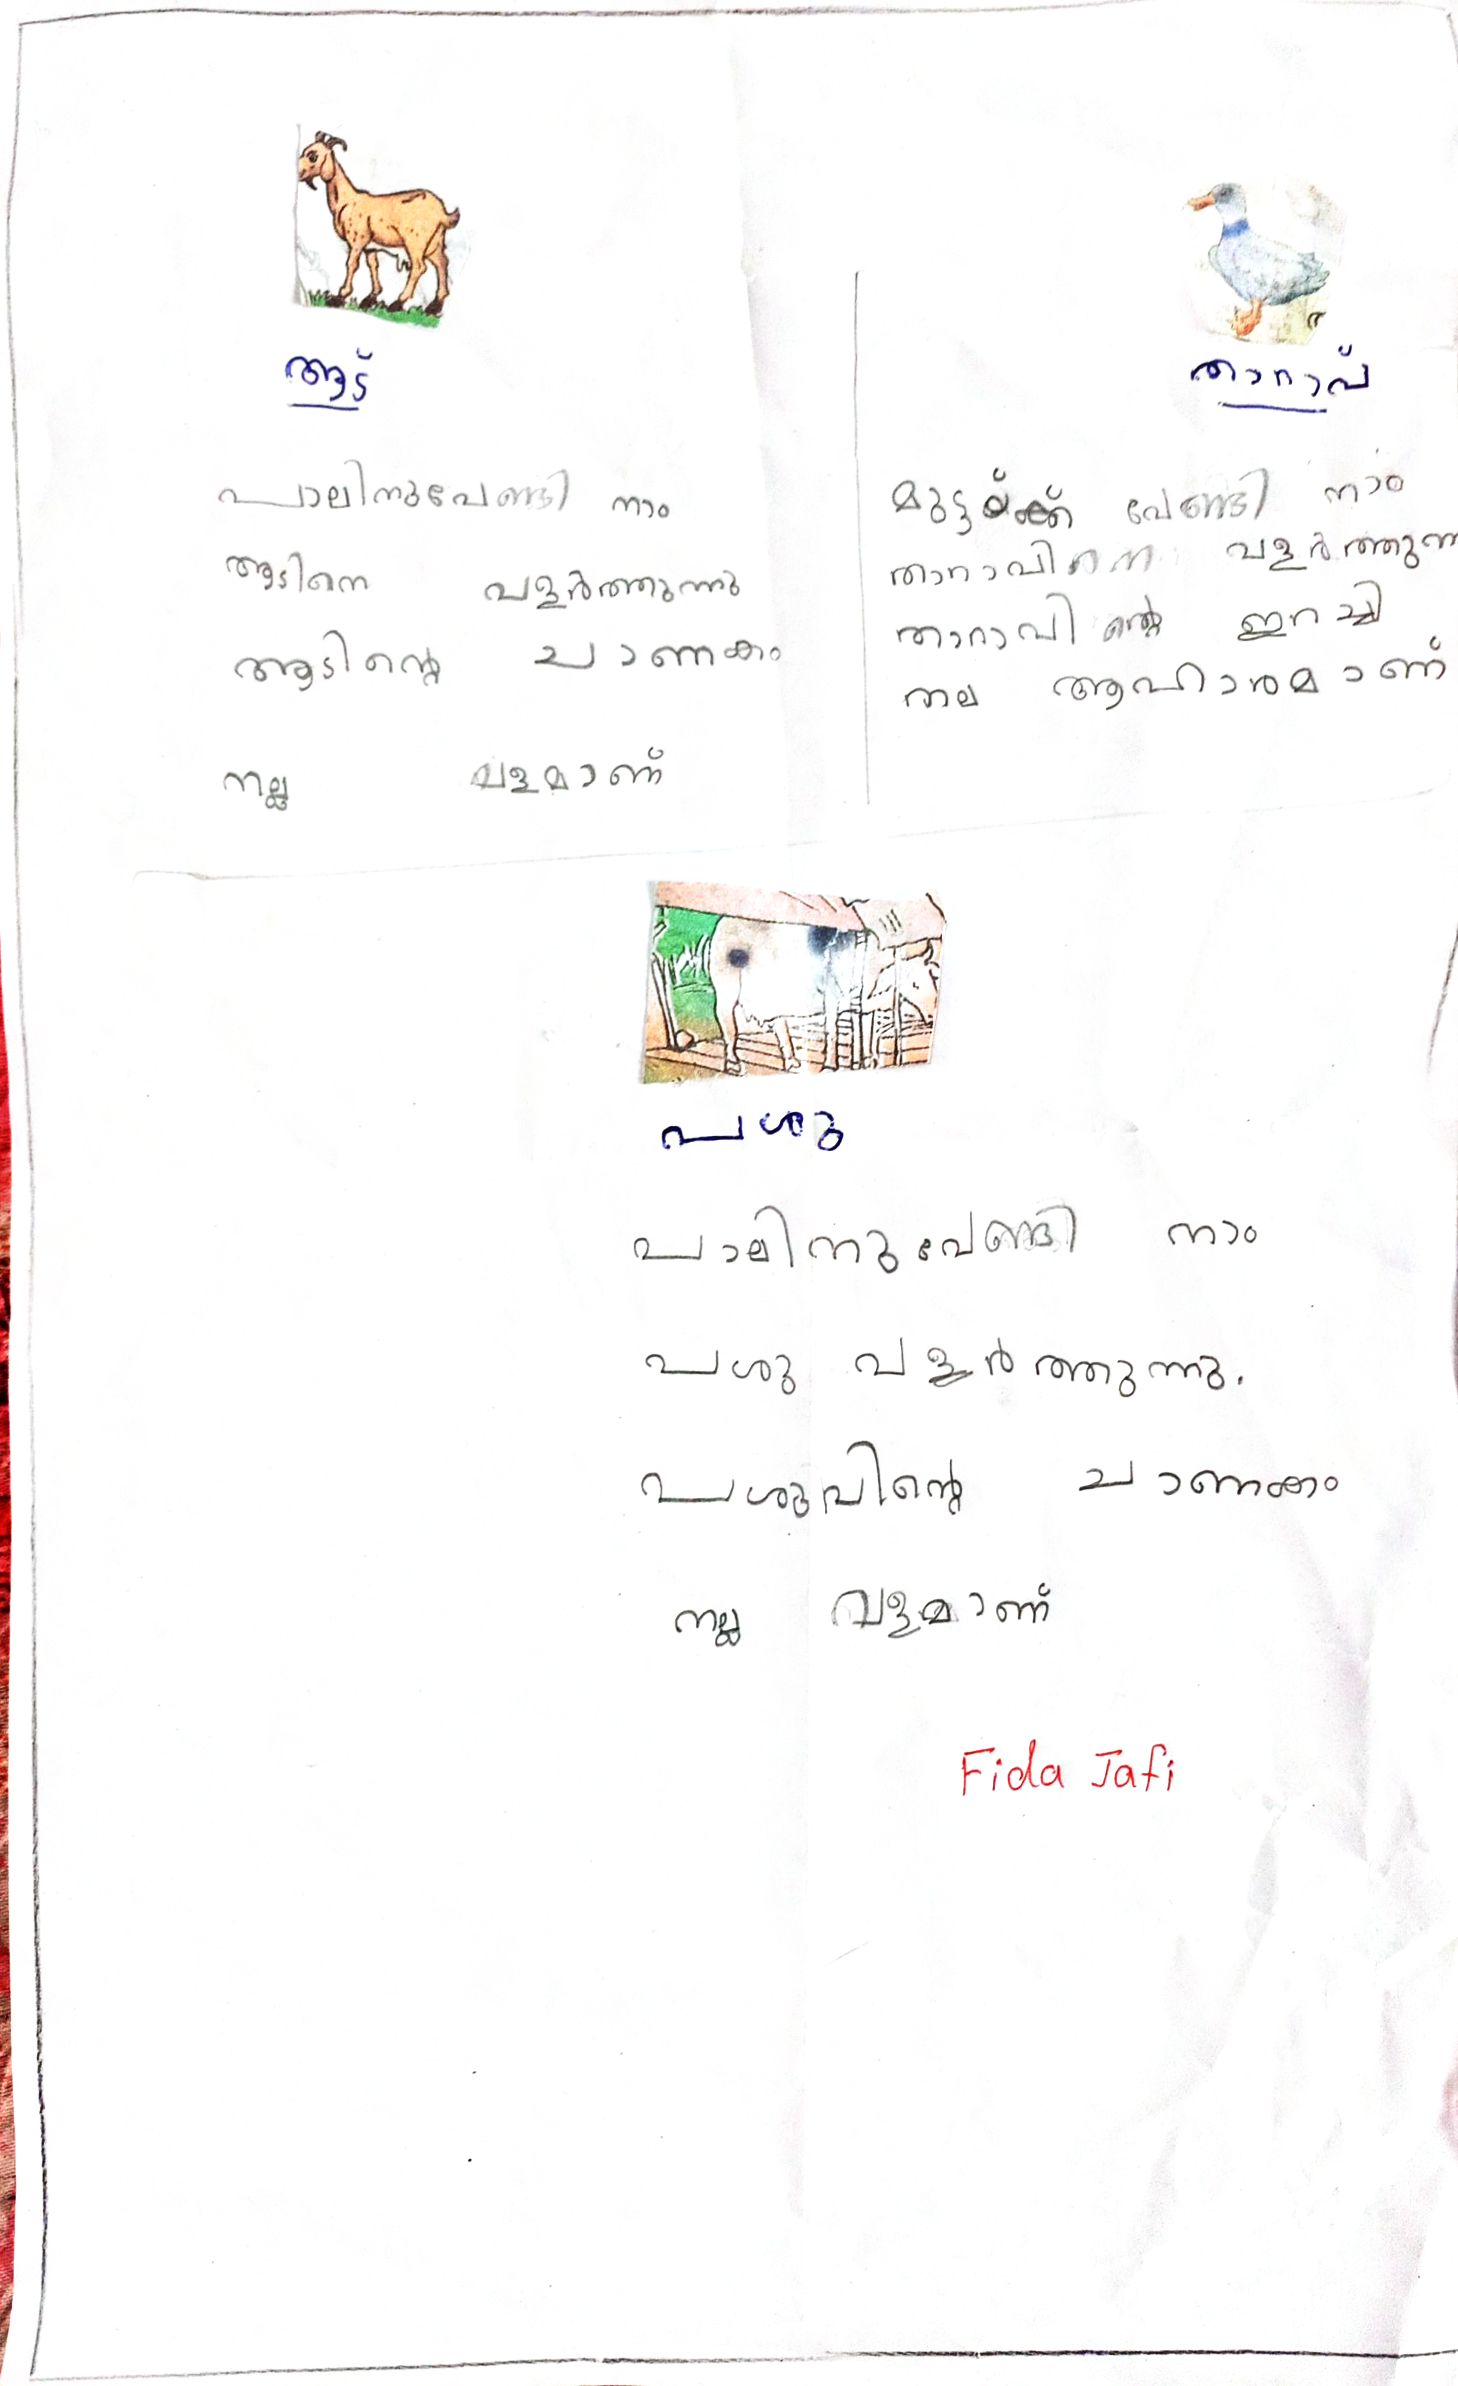 ആട്
പാലിനുവേണ്ടി നാം
ആടിനെ വളർത്തുന്നു
ആടിന്റെ ചാണകം
നല്ല വളമാണ്
താറാവ്
മുട്ടയ്ക്ക് വേണ്ടി നാം
താറാവിനെ വളർത്തുന്ന
താറാവിന്റെ ഇറച്ചി
നല ആഹാരമാണ്
പശു
പാലിനുവേണ്ടി നാം
പശു വളർത്തുന്നു.
പശുവിന്റെ ചാണകം
നല്ല വളമാണ്
Fida Jafi